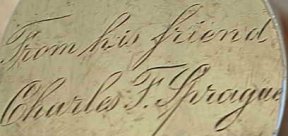 From his friend
Charles F. Sprague